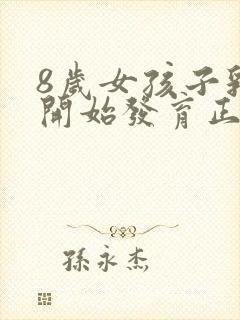 8歲女孩子乳
開始發育正
孫永杰